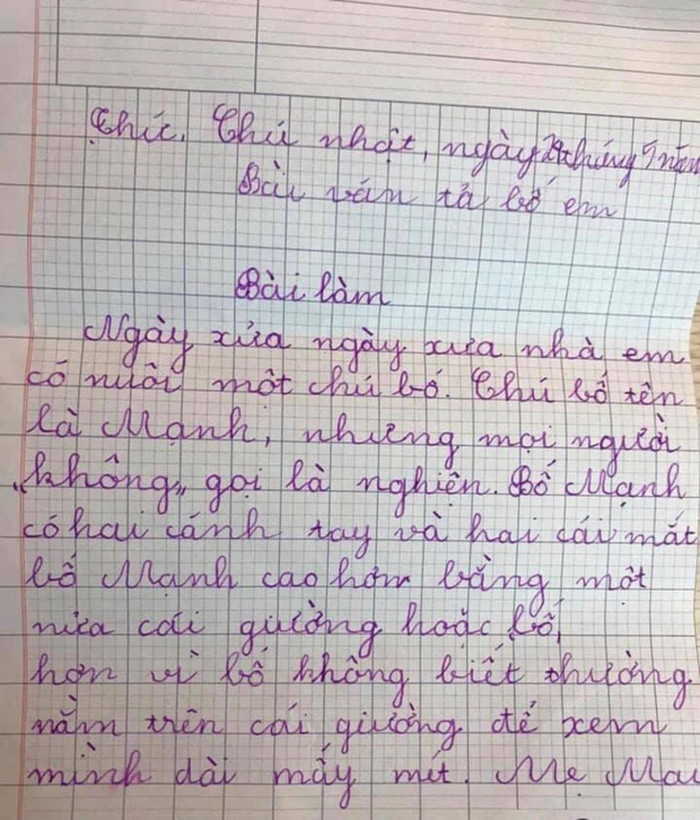 Thứ. Chủ nhật, ngày tháng năm
Bài văn tả bố em
Bài làm
Ngày xửa ngày xưa nhà em
có nuôi một chú bố. Chú bố tên
là Mạnh, nhưng mọi người
"không" gọi là nghiện. Bố Mạnh
có hai cánh tay và hai cái mắt
bố Mạnh cao hơn bằng một
nửa cái giường hoặc bố
hơn vì bố không biết thường
nằm trên cái giường để xem
mình dài mấy mét. Mẹ Mai